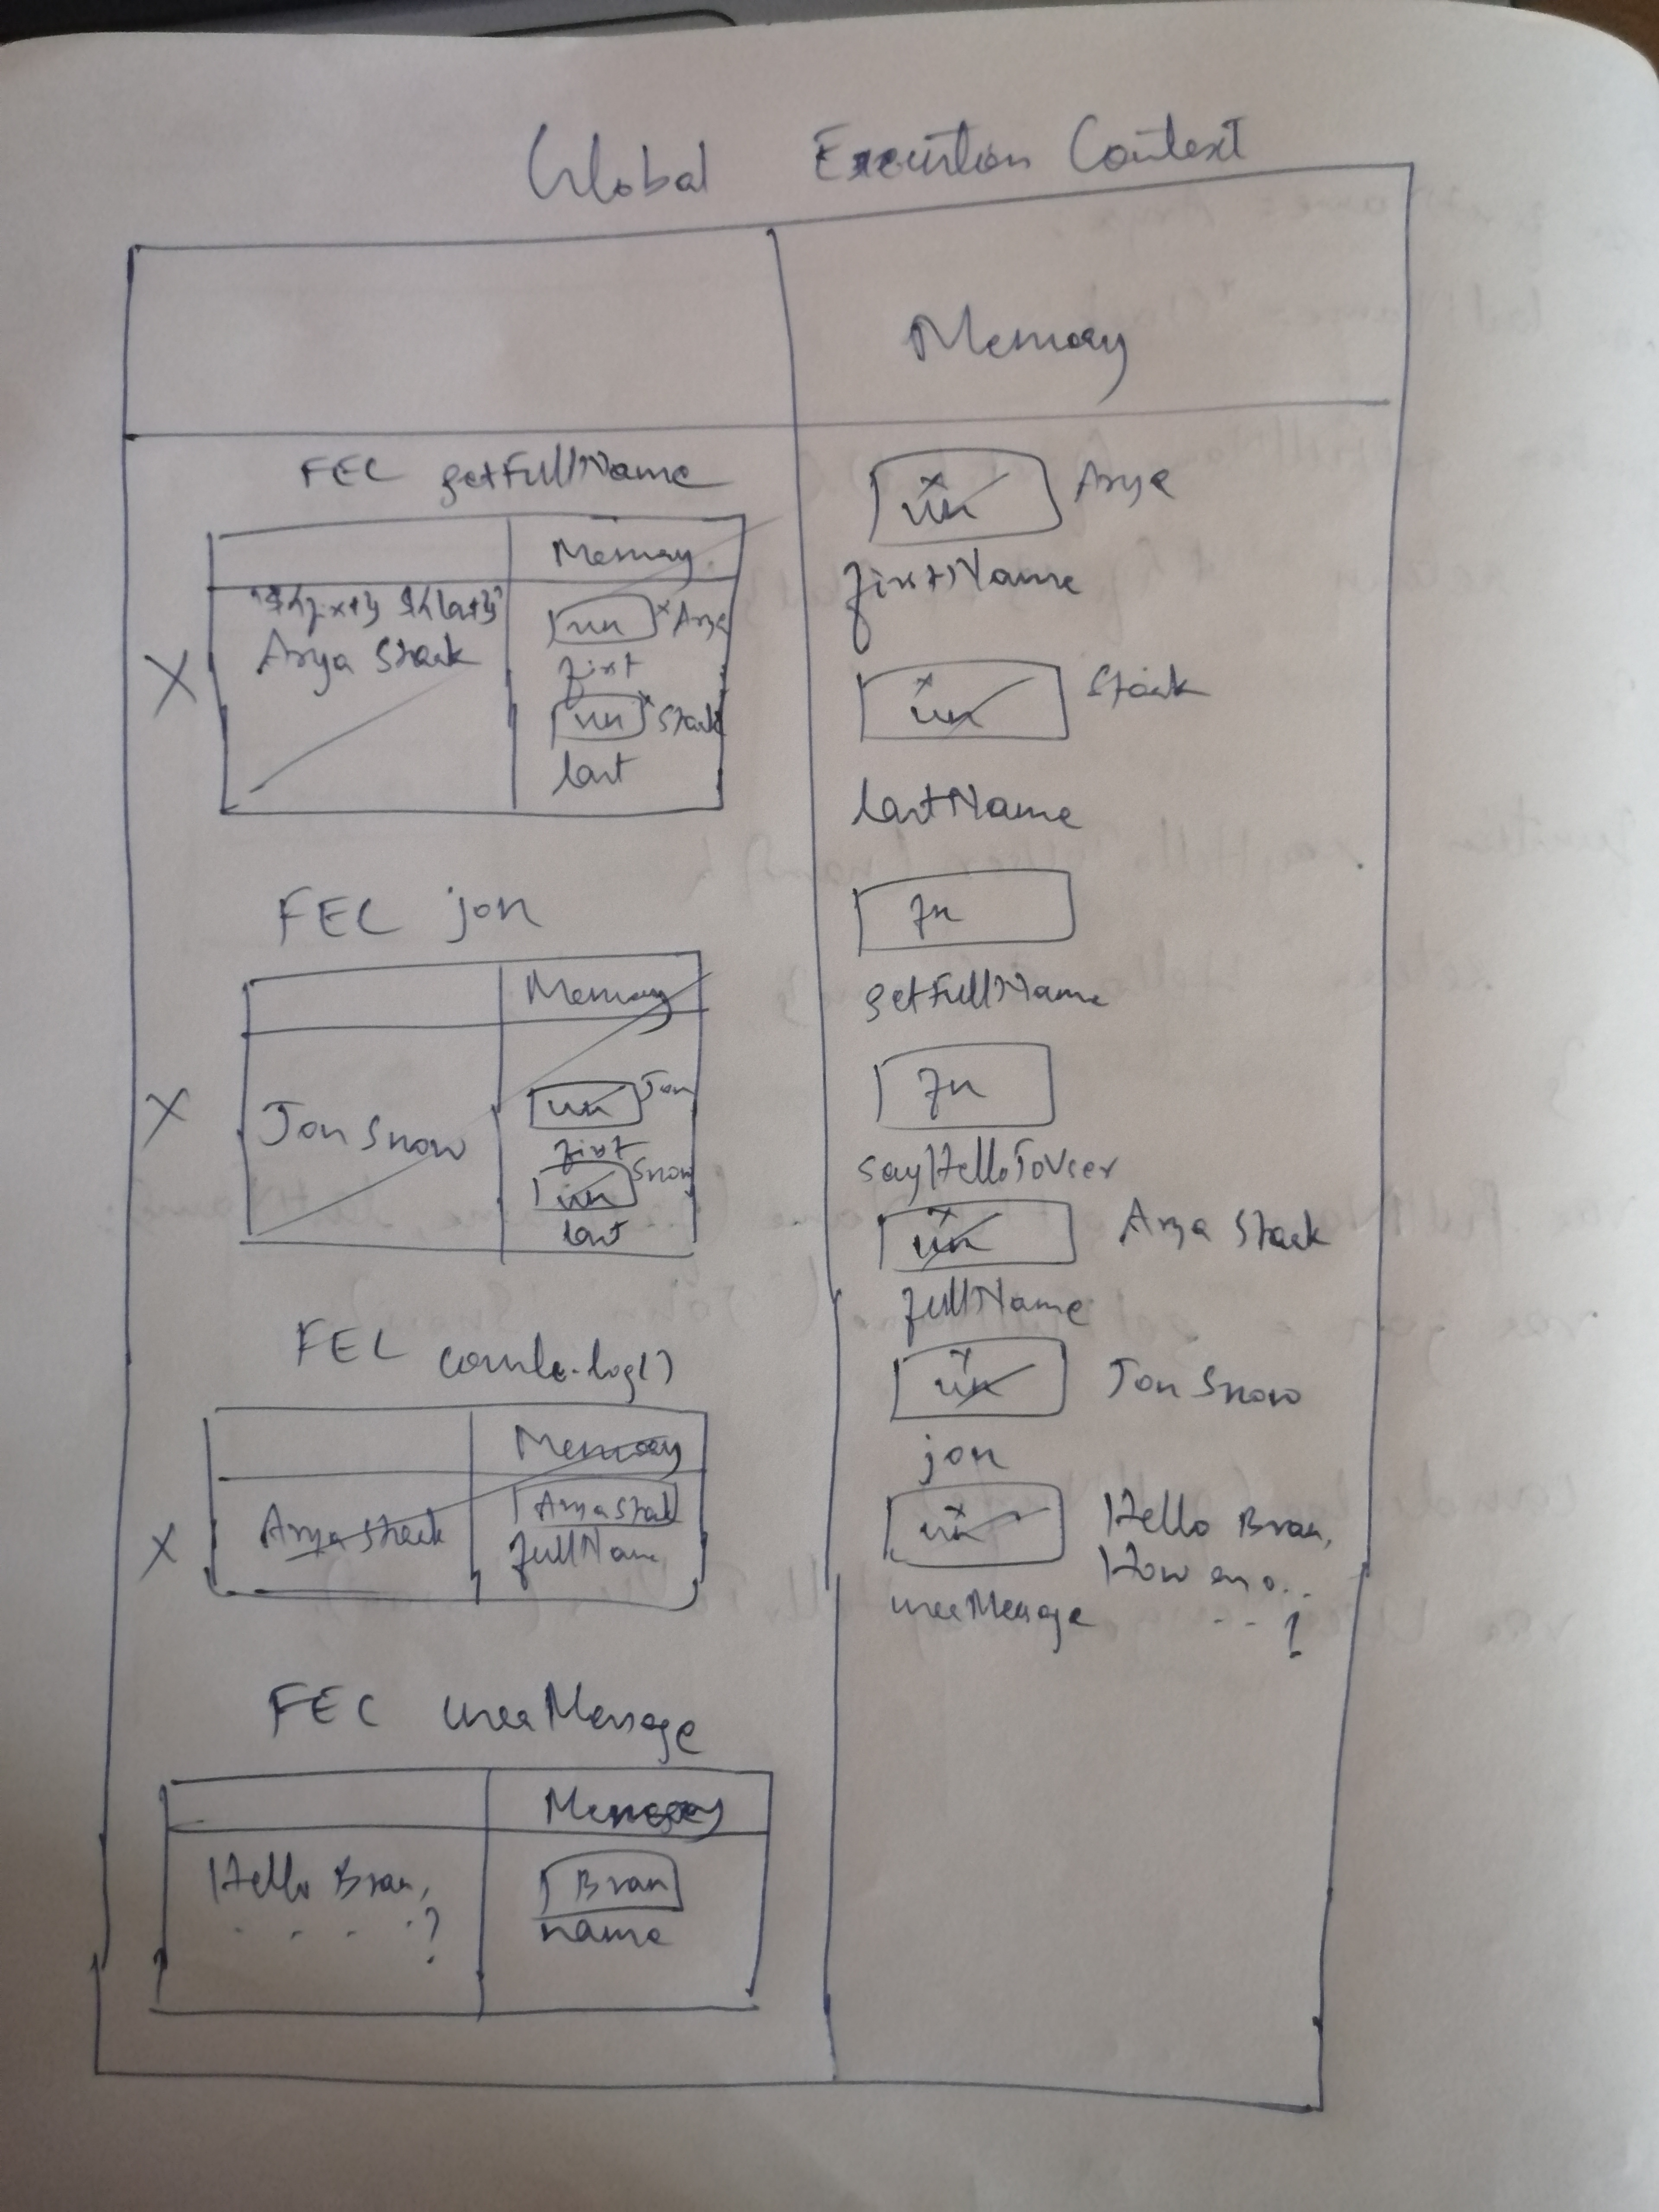 Global Execution Context
Memory
FEC getFullName
Memory
`${first} ${last}`
Arya Stark
un Arya
first
un Stark
last
FEC jon
Memory
Jon Snow
un Jon
first
un Snow
last
FEC console.log()
Memory
Arya Stark
Arya Stark
fullName
FEC userMessage
Memory
Hello Bran,
. . . . ?
Bran
name
un Arya
firstName
un Stark
lastName
fn
getFullName
fn
sayHelloToUser
un Arya Stark
fullName
un Jon Snow
jon
un Hello Bran,
How
userMessage